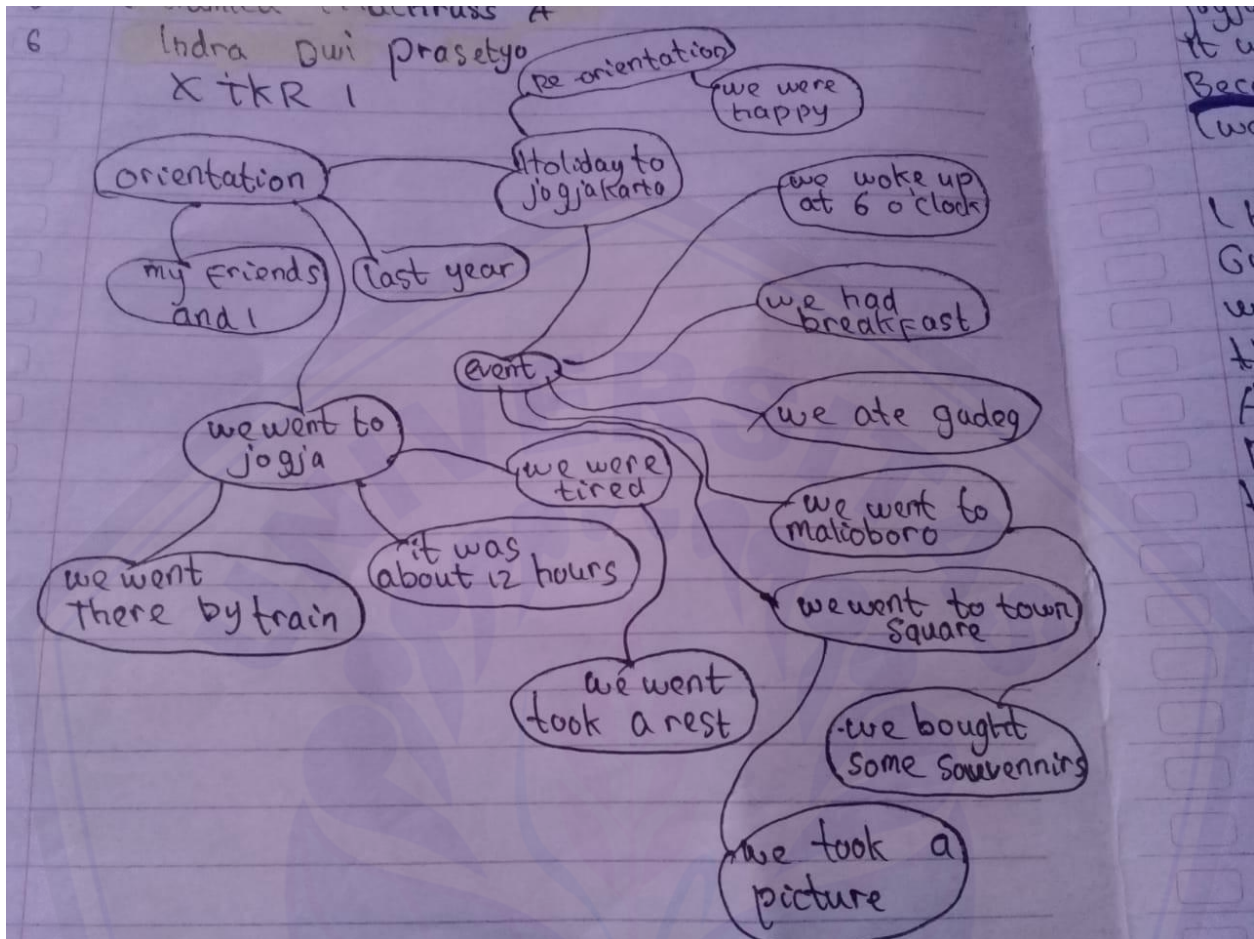 6
Indra Dwi Prasetyo
X TKR 1
Re-orientation
we were
happy
orientation
Holiday to
jogjakarta
we woke up
at 6 o'clock
my friends
and I
last year
we had
breakfast
event
we ate gudeg
we went to
jogja
we were
tired
we went to
malioboro
it was
about 12 hours
we went
There by train
we went to town
square
we went
took a rest
we bought
some souvennirs
we took a
picture